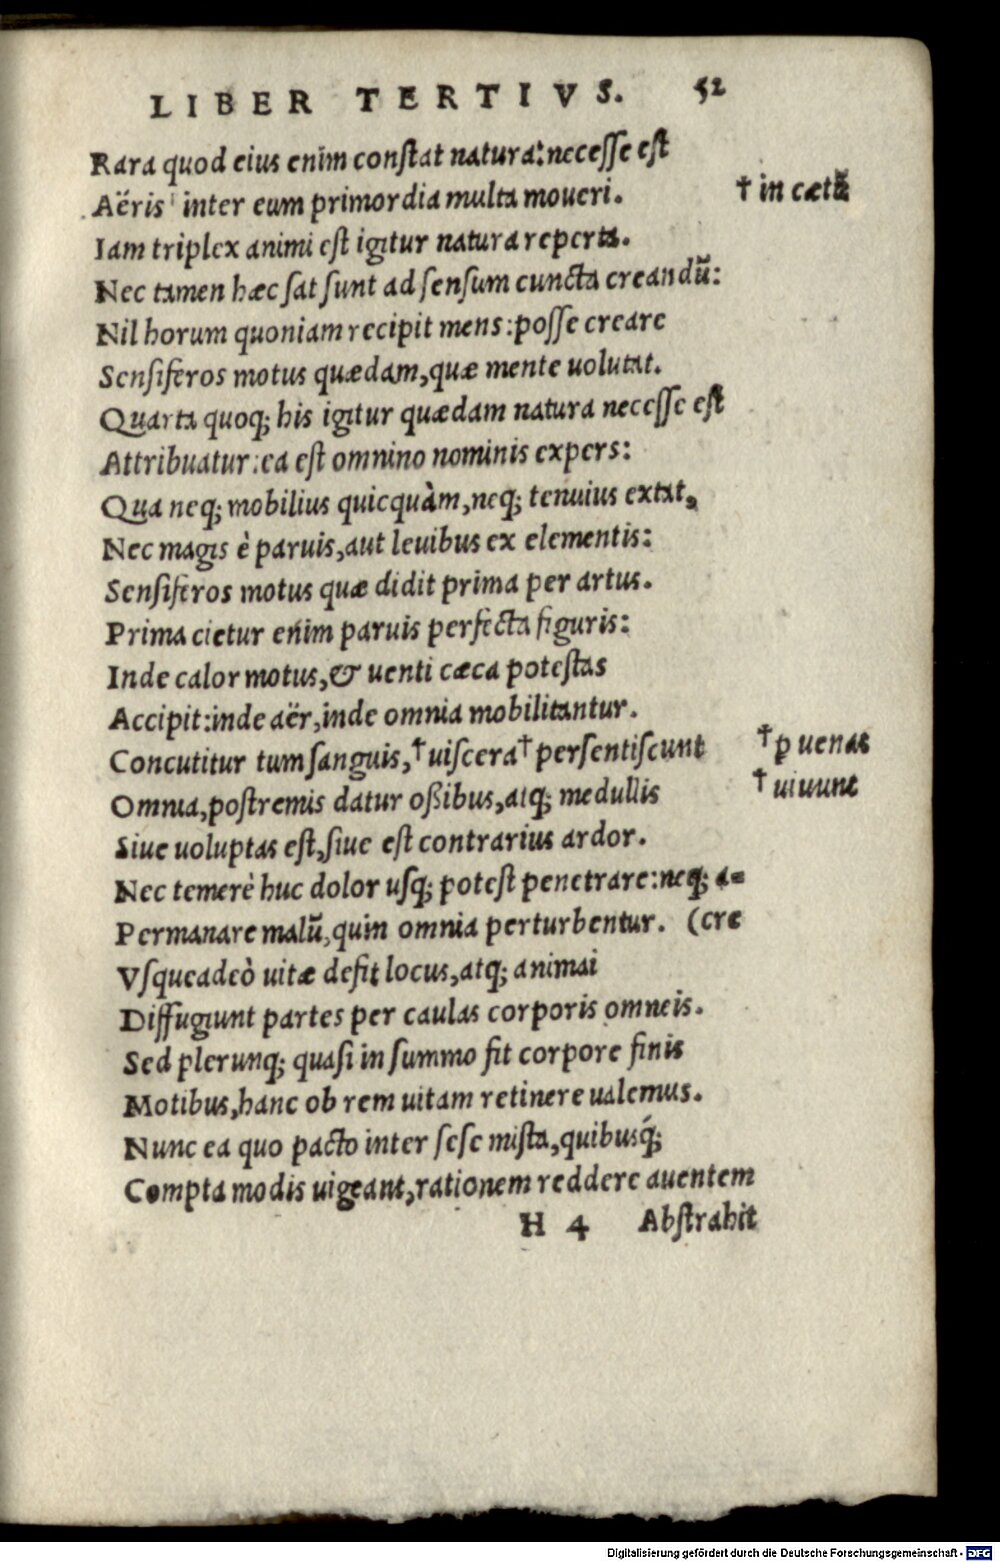 LIBER TERTIVS. 52
Rara quod eius enim constat natura: necesse est
Aëris inter eum primordia multa moueri. † in cætũ
Iam triplex animi est igitur natura reperta.
Nec tamen hæc sat sunt ad sensum cuncta creandũ:
Nil horum quoniam recipit mens: posse creare
Sensiferos motus quædam, quæ mente uolutat.
Quarta quoq; his igitur quædam natura necesse est
Attribuatur: ea est omnino nominis expers:
Qua neq; mobilius quicquàm, neq; tenuius extat,
Nec magis è paruis, aut leuibus ex elementis:
Sensiferos motus quæ didit prima per artus.
Prima cietur enim paruis perfecta figuris:
Inde calor motus, & uenti cæca potestas
Accipit: inde aër, inde omnia mobilitantur.
Concutitur tum sanguis, † uiscera † persentiscunt † ꝑ uenas
Omnia, postremis datur oßibus, atq; medullis † uiuunt
Siue uoluptas est, siue est contrarius ardor.
Nec temerè huc dolor usq; potest penetrare: neq; a-
Permanare malũ, quin omnia perturbentur. (cre
Vsqueadeò uitæ defit locus, atq; animai
Diffugiunt partes per caulas corporis omneis.
Sed plerunq; quasi in summo fit corpore finis
Motibus, hanc ob rem uitam retinere ualemus.
Nunc ea quo pacto inter sese mista, quibusq́;
Compta modis uigeant, rationem reddere auentem
H 4 Abstrahit
Digitalisierung gefördert durch die Deutsche Forschungsgemeinschaft - DFG